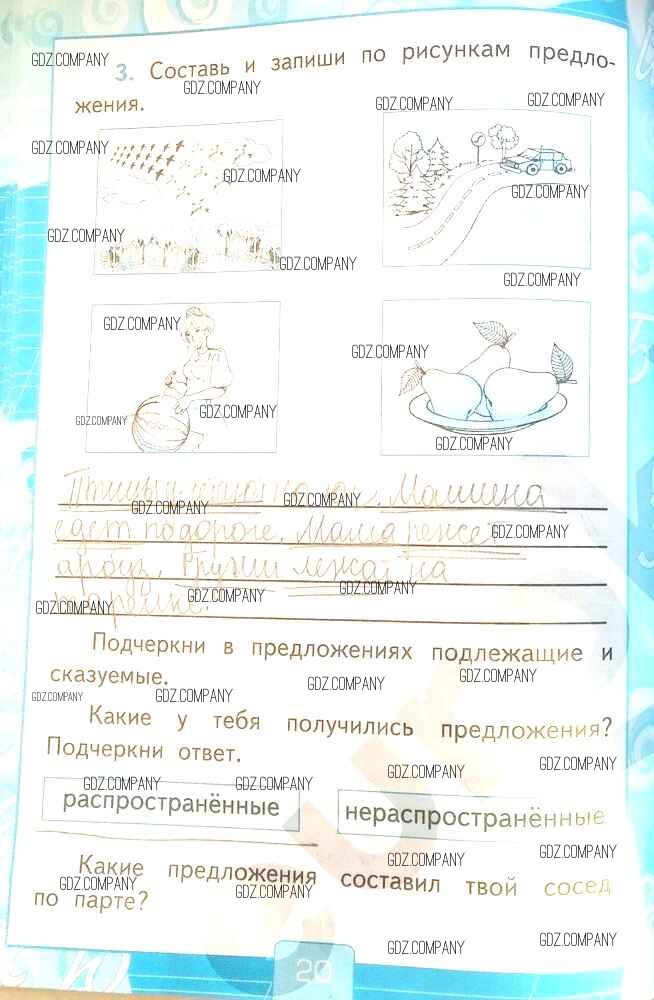 3. Составь и запиши по рисункам предло-
жения.
Птицы на юг. Машина
едет по дороге. Мама режет
арбуз. Груши лежат на
тарелке.
Подчеркни в предложениях подлежащие и
сказуемые.
Какие у тебя получились предложения?
Подчеркни ответ.
распространённые нераспространённые
Какие предложения составил твой сосед
по парте?
20
GDZ.COMPANY